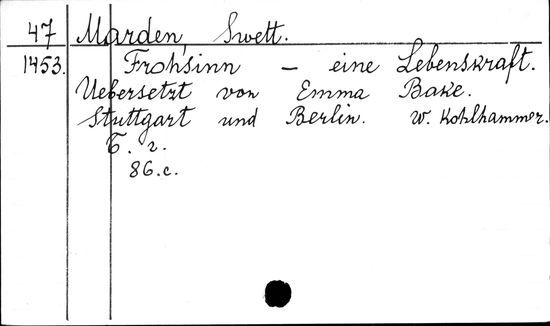 47 Marden, Swett.
1453. Frohsinn – eine Lebenskraft.
Uebersetzt von Emma Bake.
Stuttgart und Berlin. W. Kohlhammer.
86.c.